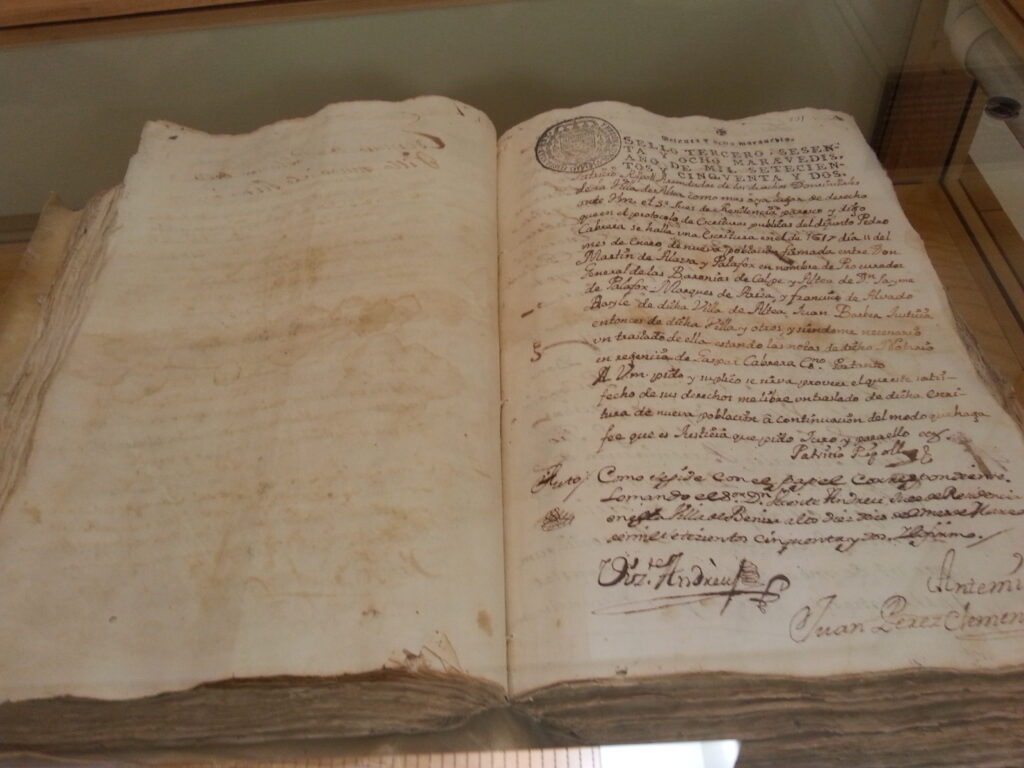 SELLO TERCERO, SESEN-
TA Y OCHO MARAVEDIS,
AÑO DE MIL SETECIEN-
TOS, Y CINQVENTA Y DOS.
Patricio Ripoll de los derechos Dominicales
de la Villa de Altea como mas aya lugar de derecho
ante Vm. el Sr. Juez de Residencia paresco y digo
que en el protocolo de Escrituras publicas del difunto Pedro
Cabrera se halla una Escritura en el de 1617 dia 11 del
mes de Enero de nueva poblacion firmada entre Don
Martin de Alava y Palafox en nombre de Procurador
General de las Baronias de Calpe y Altea de Dn. Jayme
de Palafox Marques de Ariza, y Francisco de Alvado
Bayle de dicha Villa de Altea, Juan Barber Justicia
entonces de dicha Villa y otros, y siendome necesario
un traslado de ella estando las notas de dicho Notario
en regencia de Gaspar Cabrera Esno. Portanto
A Vm. pido y suplico se sirva proveer el que este satis-
fecho de sus derechos me libre un traslado de dicha Escri-
tura de nueva poblacion a continuacion del modo que haga
fee que es Justicia que pido Juro y para ello etc.
Patricio Ripoll
Auto Como se pide con el papel correspondiente
Lo mando el Sor. Dn. Vicente Andreu Juez de Residencia
en esta Villa de Benisa a los diez dias de
de mil setecientos cinquenta y dos. Y lo firmo.
Andreu
Antemi
Juan Perez Clemen